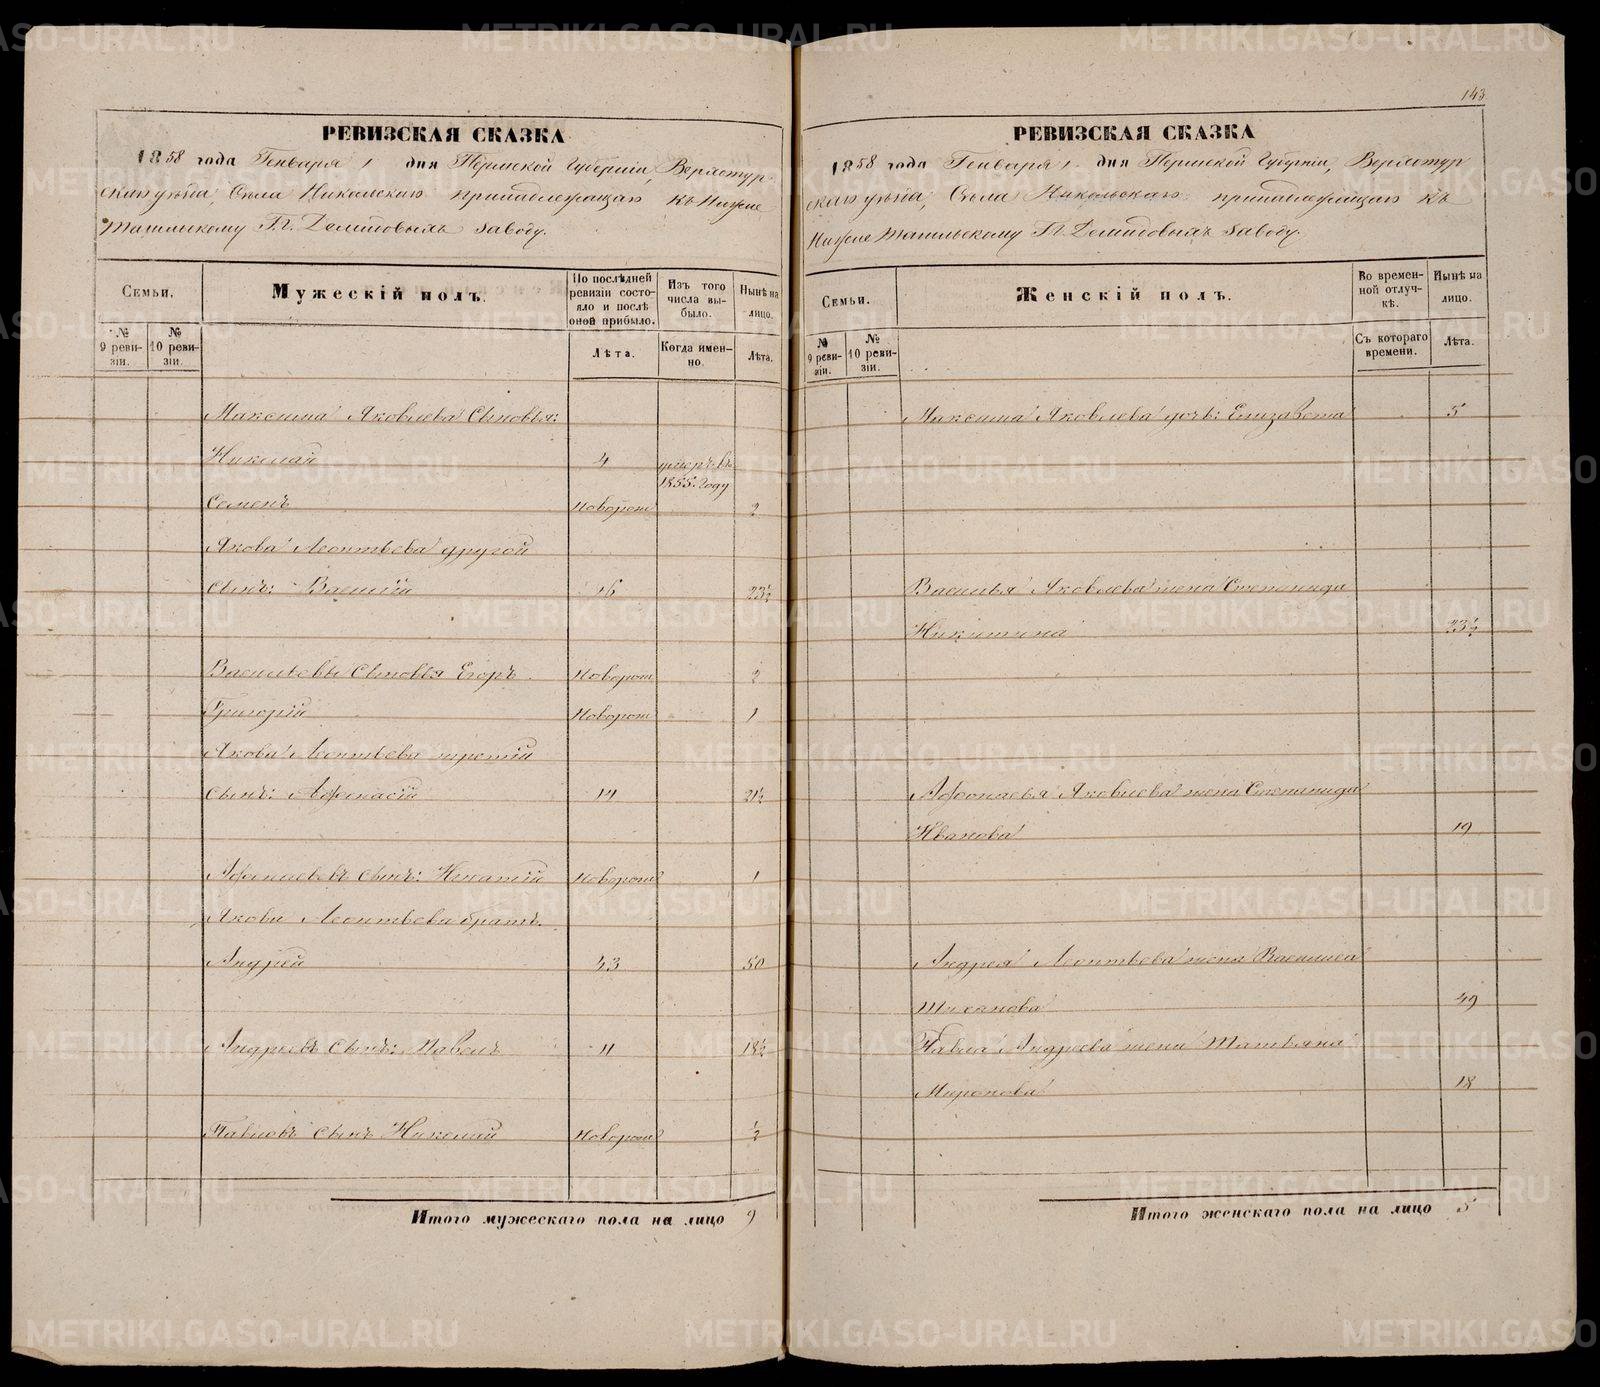 143
РЕВИЗСКАЯ СКАЗКА
1858 года Генваря 1 дня Пермской Губерніи, Верхотур-
скаго уѣзда, Села Никольскаго принадлежащаго къ Нижне
Тагильскому Гг. Демидовыхъ заводу.
Семьи.
Мужескій полъ.
По послѣдней ревизіи состояло и послѣ оной прибыло.
Изъ того числа выбыло.
Нынѣ на лицо.
№ 9 ревизіи.
№ 10 ревизіи.
Лѣта.
Когда именно.
Лѣта.
Максима Яковлева Сыновья:
Николай 4 умеръ въ 1855. году
Семенъ новорож 2
Якова Леонтьева другой
Сынъ: Василій 16 23½
Васильевы Сыновья Егоръ новорож 2
Григорій новорож 1
Якова Леонтьева третій
сынъ: Афонасій 14 21½
Афонасьевъ сынъ: Игнатій новорож 1
Якова Леонтьева братъ
Андрей 43 50
Андреевъ Сынъ: Павелъ 11 18½
Павловъ сынъ Николай новорож ½
Итого мужескаго пола на лицо 9
РЕВИЗСКАЯ СКАЗКА
1858 года Генваря 1 дня Пермской Губерніи, Верхотур
скаго уѣзда, Села Никольскаго принадлежащаго къ
Нижне Тагильскому Гг. Демидовыхъ заводу.
Семьи.
Женскій полъ.
Во временной отлучкѣ.
Нынѣ на лицо.
№ 9 ревизіи.
№ 10 ревизіи.
Съ котораго времени.
Лѣта.
Максима Яковлева дочь: Елизавета 5
Василья Яковлева жена Степанида
Никитина 23½
Афонасья Яковлева жена Степанида
Иванова 19
Андрея Леонтьева жена Василиса
Тиханова 49
Павла Андреева жена Татьяна
Миронова 18
Итого женскаго пола на лицо 5
METRIKI.GASO-URAL.RU